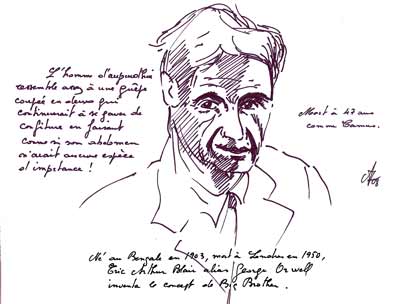 L'homme d'aujourd'hui
ressemble assez à une guêpe
coupée en deux qui
continuerait à se gaver de
confiture en faisant
comme si son abdomen
n'avait aucune espèce
d'importance !
Mort à 47 ans
comme Camus.
Né au Bengale en 1903, mort à Londres en 1950,
Eric Arthur Blair alias George Orwell
inventa le concept de Big Brother.